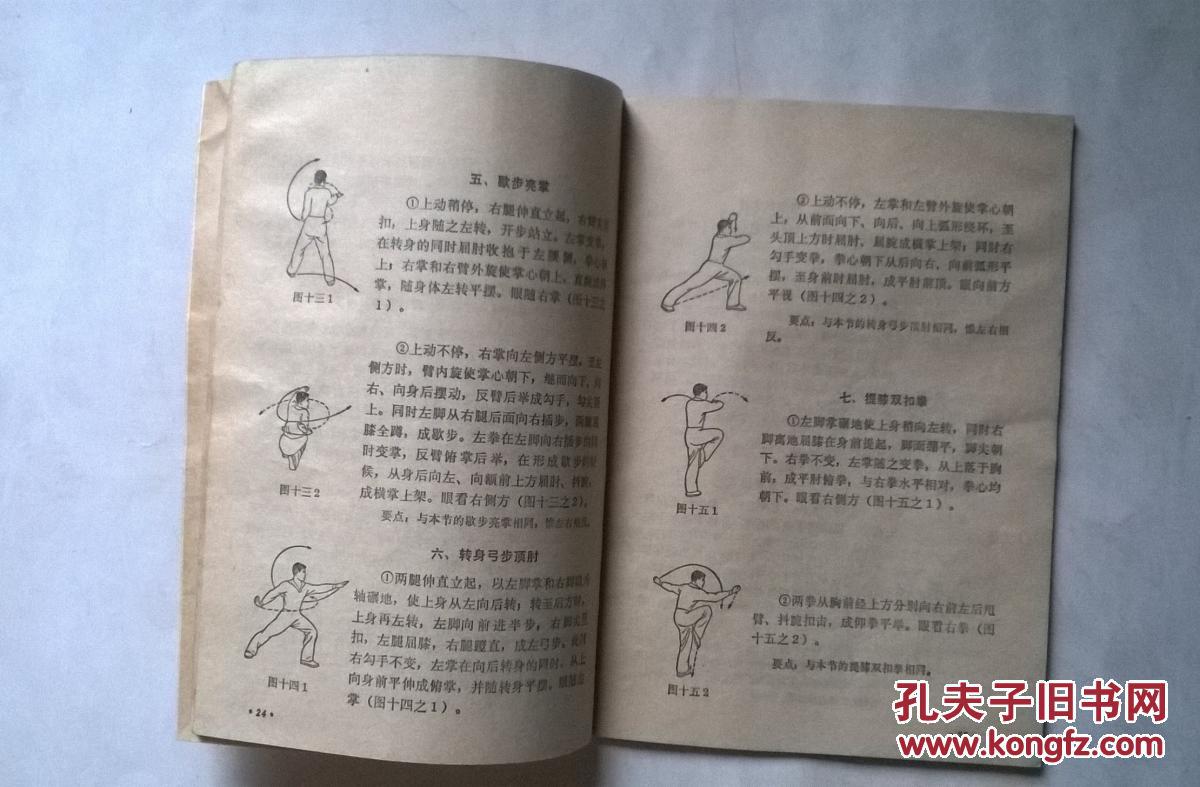 五、歇步亮掌
①上动稍停，右腿伸直立起，右脚
扣，上身随之左转，开步站立。左掌变拳，
在转身的同时屈肘收抱于左腰侧，拳心
上；右掌和右臂外旋使掌心朝上、直腕成
掌，随身体左转平摆。眼随右掌（图十三之
1）。
图十三1
②上动不停，右掌向左侧方平摆，至左
侧方时，臂内旋使掌心朝下，继而向下、向
右、向身后摆动，反臂后举成勾手，勾尖
上。同时左脚从右腿后面向右插步，两腿屈
膝全蹲，成歇步。左拳在左脚向右插步的
时变掌，反臂俯掌后举，在形成歇步的时
候，从身后向左、向额前上方屈肘、抖腕，
成横掌上架。眼看右侧方（图十三之2）。
要点：与本节的歇步亮掌相同，惟左右相反。
图十三2
六、转身弓步顶肘
①两腿伸直立起，以左脚掌和右脚跟为
轴碾地，使上身从左向后转；转至后方时，
上身再左转，左脚向前进半步，右脚尖里
扣，左腿屈膝，右腿蹬直，成左弓步。
右勾手不变，左掌在向后转身的同时，从上
向身前平伸成俯掌，并随转身平摆。眼随左
掌（图十四之1）。
图十四1
•24•
②上动不停，左掌和左臂外旋使掌心朝
上，从前面向下、向后、向上弧形绕环，至
头顶上方时屈肘、屈腕成横掌上架；同时右
勾手变拳，拳心朝下从后向右、向前弧形平
摆，至身前时屈肘，成平肘前顶。眼向前方
平视（图十四之2）。
图十四2
要点：与本节的转身弓步顶肘相同，惟左右相
反。
七、提膝双扣拳
①左脚掌碾地使上身稍向左转，同时右
脚离地屈膝在身前提起，脚面绷平，脚尖朝
下。右拳不变，左掌随之变拳，从上落于胸
前，成平肘俯拳，与右拳水平相对，拳心均
朝下。眼看右侧方（图十五之1）。
图十五1
②两拳从胸前经上方分别向右前左后甩
臂、抖腕扣击，成仰拳平举。眼看右拳（图
十五之2）。
要点：与本节的提膝双扣拳相同。
图十五2
孔夫子旧书网
www.kongfz.com